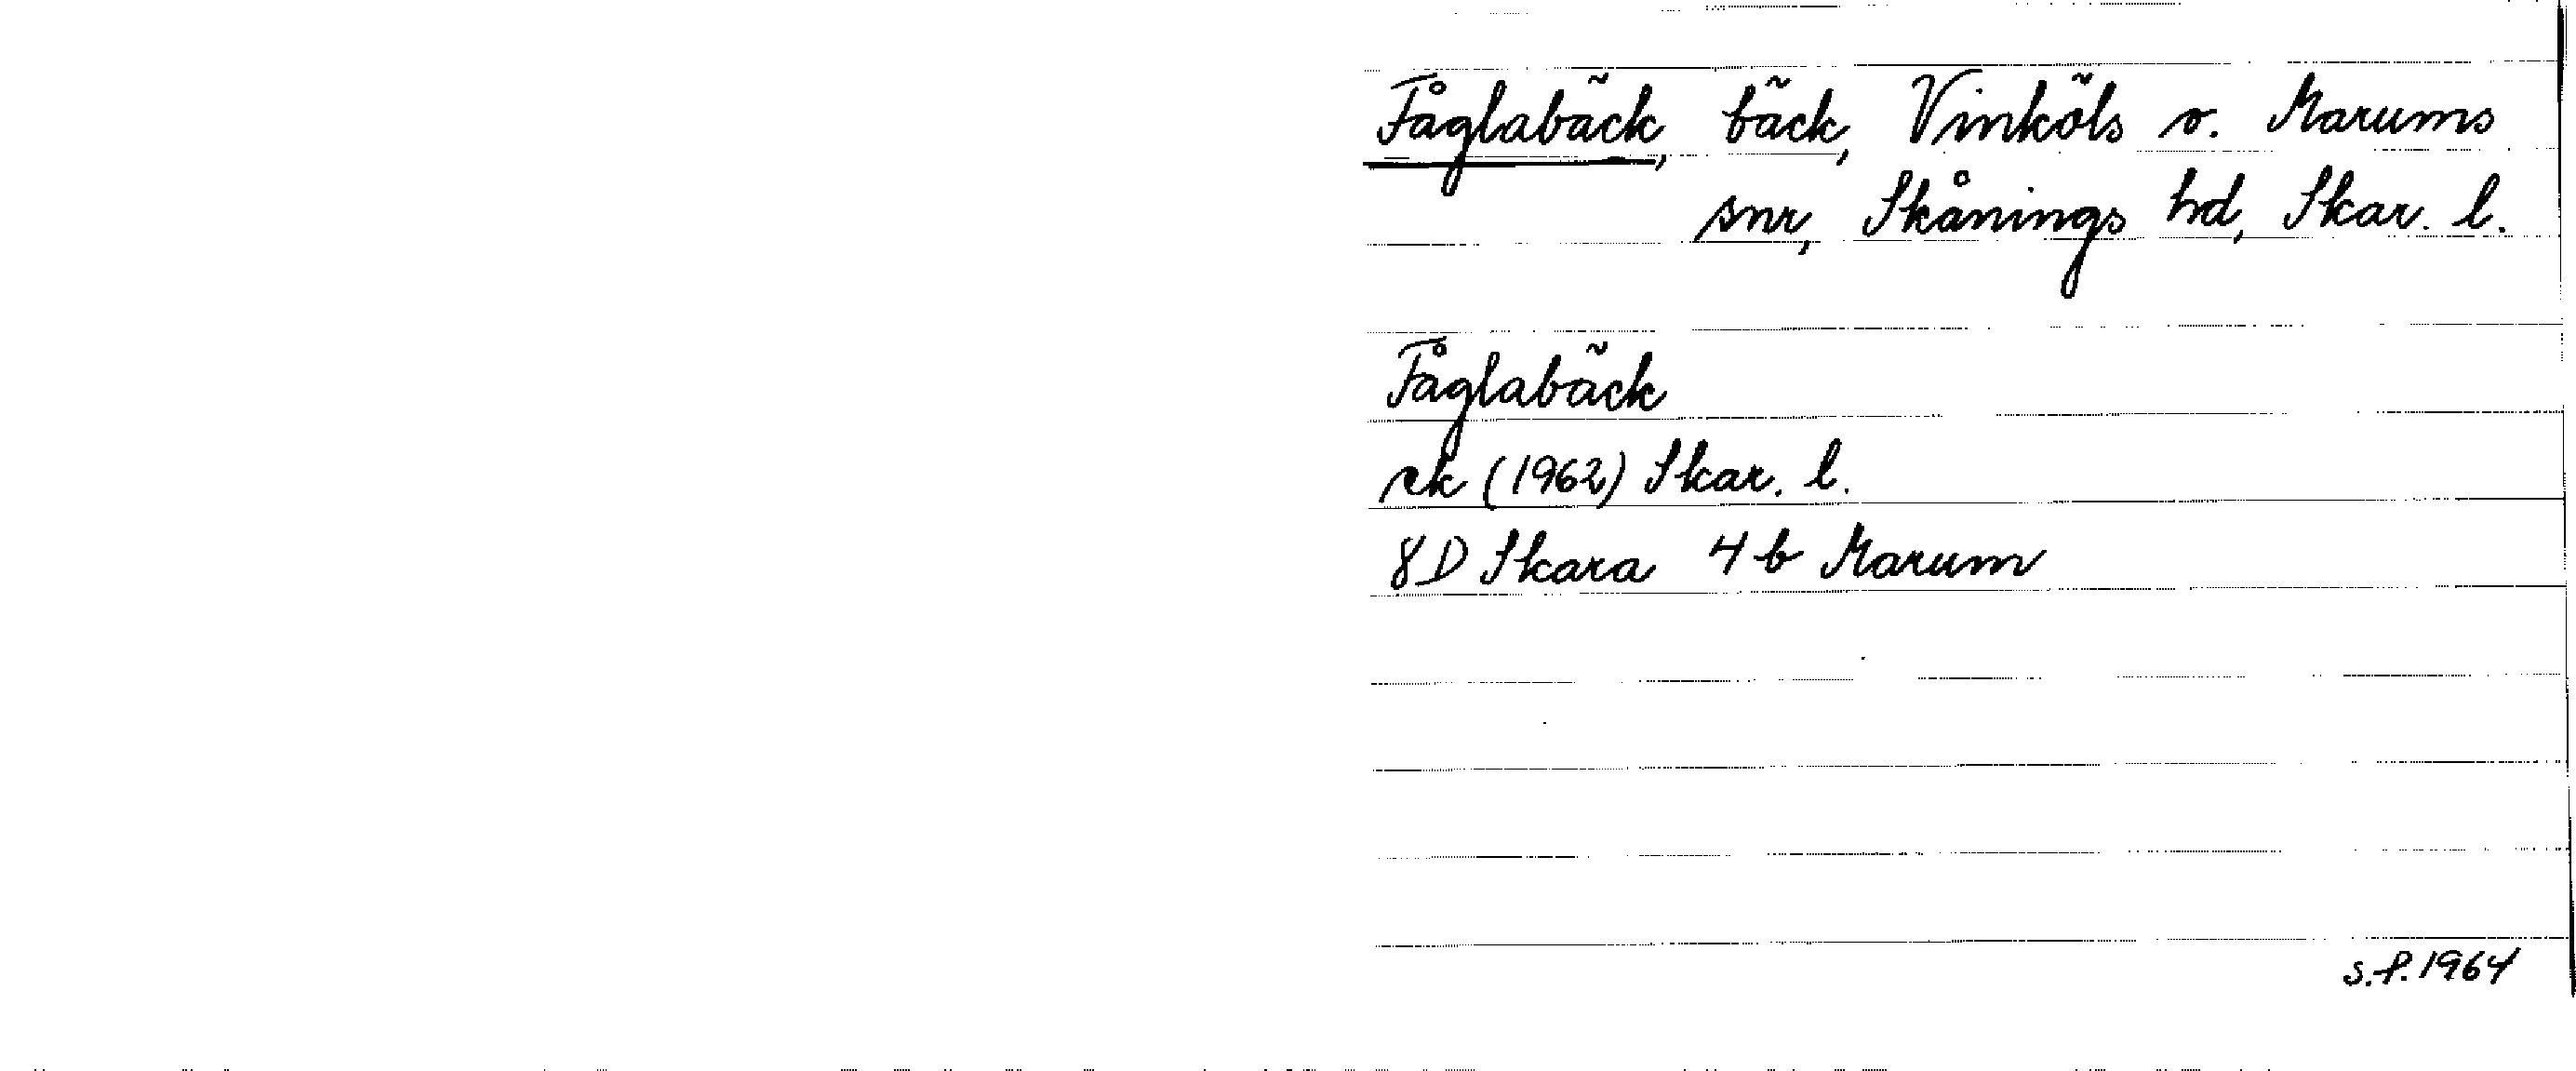 Fåglabäck, bäck, Vinköls o. Marums
snr, Skånings hd, Skar. l.
Fåglabäck
ek (1962) Skar. l.
8D Skara 4b Marum
S.F. 1964